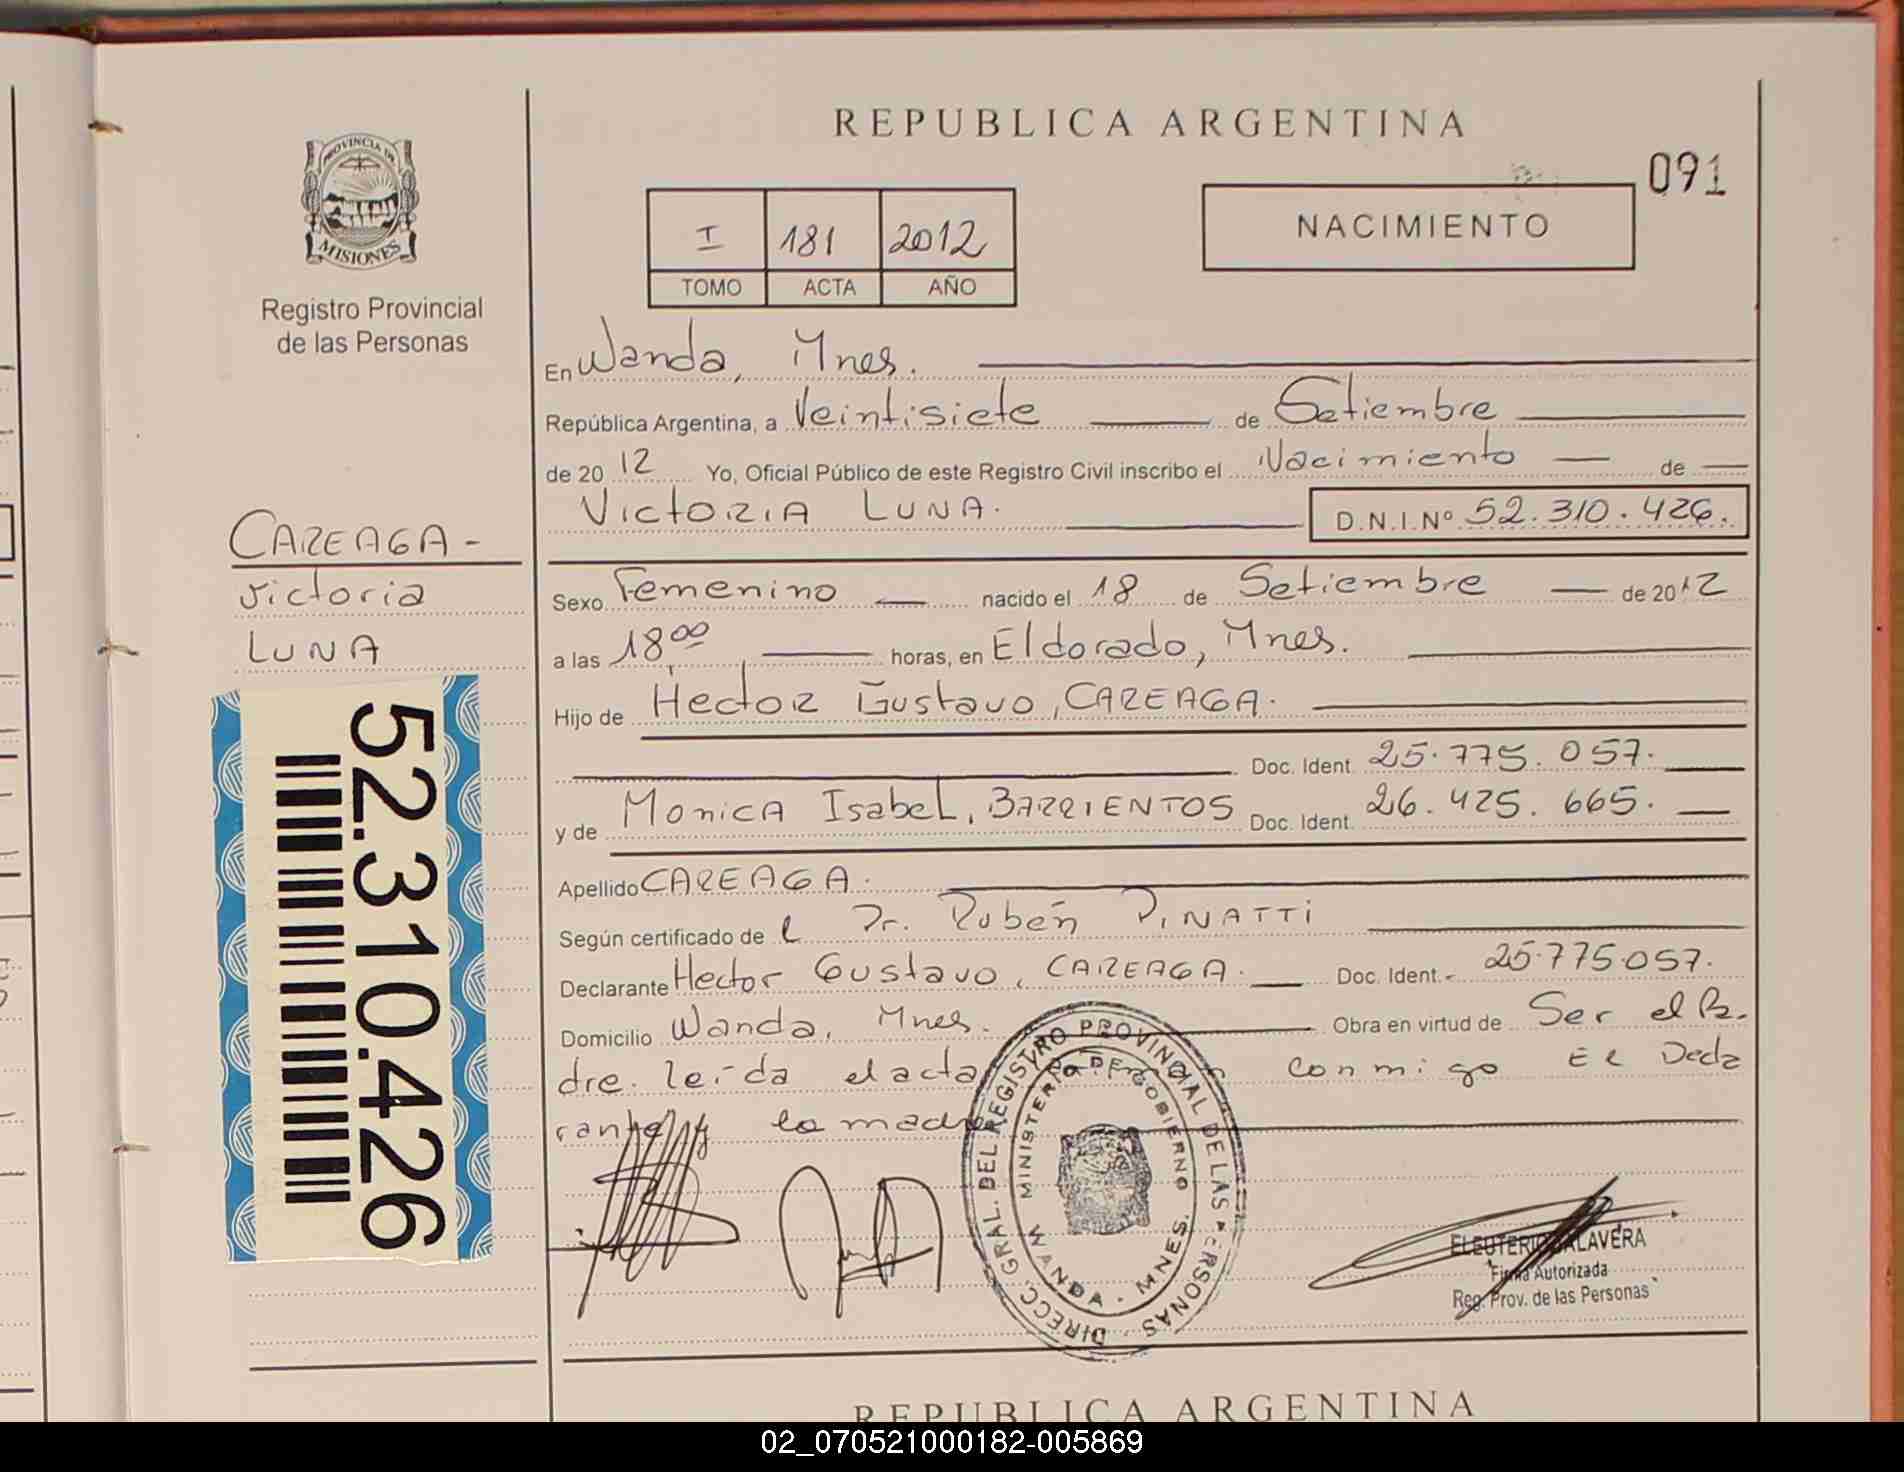 REPUBLICA ARGENTINA
091
PROVINCIA DE
MISIONES
Registro Provincial
de las Personas
I 181 2012
TOMO ACTA AÑO
NACIMIENTO
En Wanda, Mnes.
República Argentina, a Veintisiete de Setiembre
de 2012 Yo, Oficial Público de este Registro Civil inscribo el Nacimiento de
VICTORIA LUNA.
D.N.I.Nº 52.310.426.
CAREAGA -
Victoria
LUNA
Sexo Femenino nacido el 18 de Setiembre de 2012
a las 18,00 horas, en Eldorado, Mnes.
Hijo de Hector Gustavo, CAREAGA.
Doc. Ident. 25.775.057.
y de MONICA Isabel, BARRIENTOS Doc. Ident. 26.425.665.
Apellido CAREAGA.
Según certificado de l Dr. Rubén PINATTI
Declarante Hector Gustavo, CAREAGA. Doc. Ident.- 25.775.057.
Domicilio Wanda, Mnes. Obra en virtud de Ser el Pa-
dre. leída el acta conmigo El Decla
rante y la madre
52.310.426
DIRECC. GRAL. DEL REGISTRO PROVINCIAL DE LAS PERSONAS
MINISTERIO DE GOBIERNO
WANDA - MNES.
ELEUTERIO TALAVERA
Firma Autorizada
Reg. Prov. de las Personas
REPUBLICA ARGENTINA
02_070521000182-005869